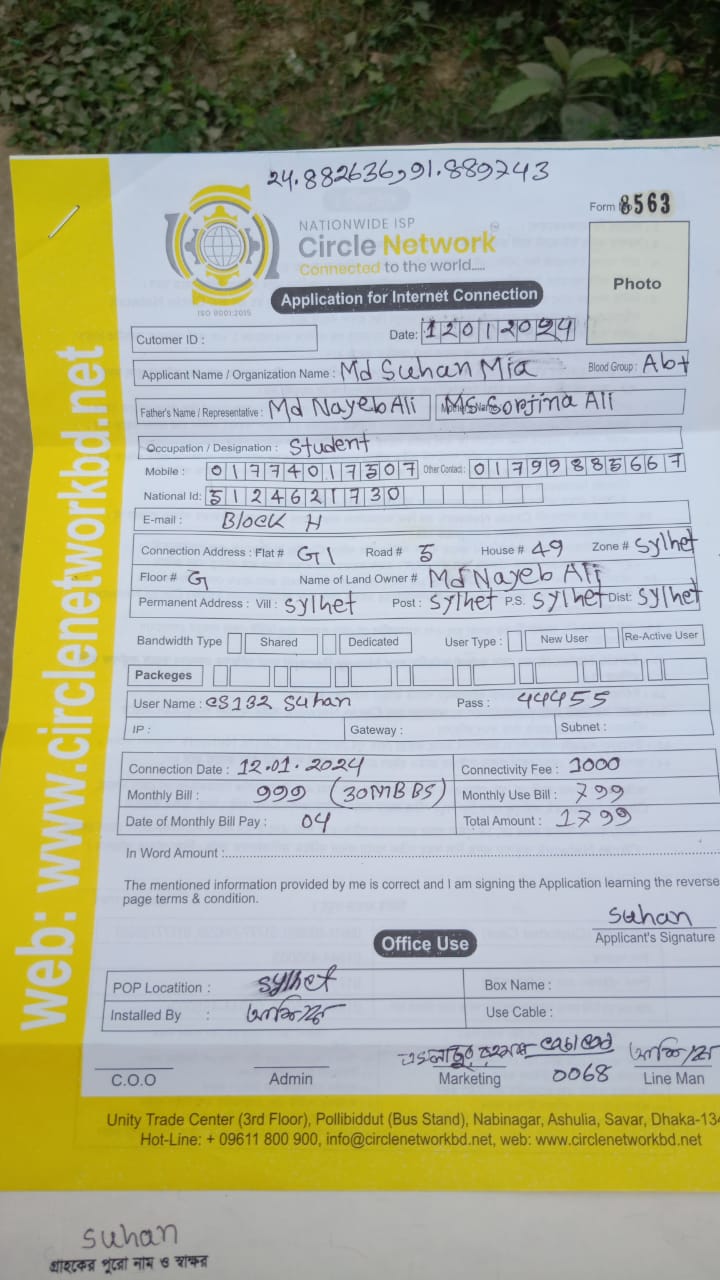 24.882636,91.889743
Form No 8563
NATIONWIDE ISP
Circle Network
Connected to the world.....
ISO 9001:2015
Application for Internet Connection
Photo
Cutomer ID :
Date: 12012024
Applicant Name / Organization Name : Md Suhan Mia Blood Group : Ab+
Father's Name / Representative : Md Nayeb Ali Ms Sorjina Ali
Occupation / Designation : Student
Mobile : 01774017307 Other Contact : 01799885667
National Id: 5124621730
E-mail : Block H
Connection Address : Flat # G1 Road # 5 House # 49 Zone # Sylhet
Floor # G Name of Land Owner # Md Nayeb Ali
Permanent Address : Vill : Sylhet Post : Sylhet P.S. Sylhet Dist: Sylhet
Bandwidth Type Shared Dedicated User Type : New User Re-Active User
Packeges
User Name : CS132 Suhan Pass : 44455
IP : Gateway : Subnet :
Connection Date : 12.01.2024 Connectivity Fee : 1000
Monthly Bill : 999 (30MBBS) Monthly Use Bill : 799
Date of Monthly Bill Pay : 04 Total Amount : 1799
In Word Amount :
The mentioned information provided by me is correct and I am signing the Application learning the reverse
page terms & condition.
Suhan
Applicant's Signature
Office Use
POP Locatition : Sylhet Box Name :
Installed By : Use Cable :
0068
C.O.O Admin Marketing Line Man
Unity Trade Center (3rd Floor), Pollibiddut (Bus Stand), Nabinagar, Ashulia, Savar, Dhaka-134
Hot-Line: + 09611 800 900, info@circlenetworkbd.net, web: www.circlenetworkbd.net
web: www.circlenetworkbd.net
Suhan
গ্রাহকের পুরো নাম ও স্বাক্ষর